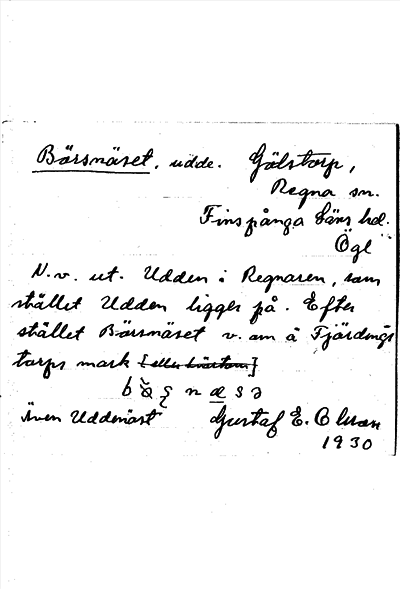 Bärsnäset, udde. Gälstorp,
Regna sn.
Finspånga läns hd.
Ögl
N.v. ut. Udden i Regnaren, som
stället Udden ligger på. Efter
stället Bärsnäset v. om å Fjärdings
torps mark
Även Uddenäst Gustaf E. Olsson
1930